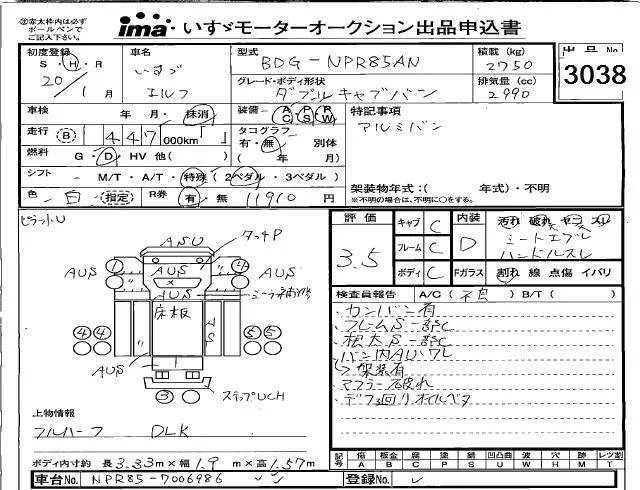 ㊟赤太枠内は必ず
ボールペンで
ご記入下さい。
ima いすゞモーターオークション出品申込書
初度登録
S・H・R
20/1月
車名
いすゞ
エルフ
型式
BDG-NPR85AN
グレード・ボディ形状
ダブルキャブバン
積載 (kg)
2750
排気量 (cc)
2990
出品No
3038
車検 年・月・抹消
装備 AC PS PW
特記事項
アルミバン
走行 B 447 000km「 」
タコグラフ
有・無 別体
( 年 月)
燃料 G・D・HV 他( )
シフト M/T・A/T・特殊(2ペダル・3ペダル)
架装物年式:( 年式)・不明
※不明の場合は、不明に○をする。
色 白 指定
R券 有・無 11910円
評価
3.5
キャブ C
フレーム C
ボディ C
内装 D
Fガラス
汚れ 破れ ヤニ スレ
シートエプレ
ハンドルスレ
割れ 線 点傷 イバリ
ASU
タッチP
AUS
AUS
AUS
AUS
床板
AS
AUS
ステップUCH
検査員報告 A/C(不良) B/T( )
・カンバン有
・フレームS一部C
・根太S一部C
・バン内AU・ワレ
→架装有
・マフラー破れ
・デフ廻りオイルベタ
上物情報
フルハーフ DLK
記号 傷A 板金B 腐C 塗P 錆S 凹凸曲U 波W 穴H 欠M レツ割T
ボディ内寸約 長3.33m×幅1.9m×高1.57m
車台No. NPR85-7006986
登録No.